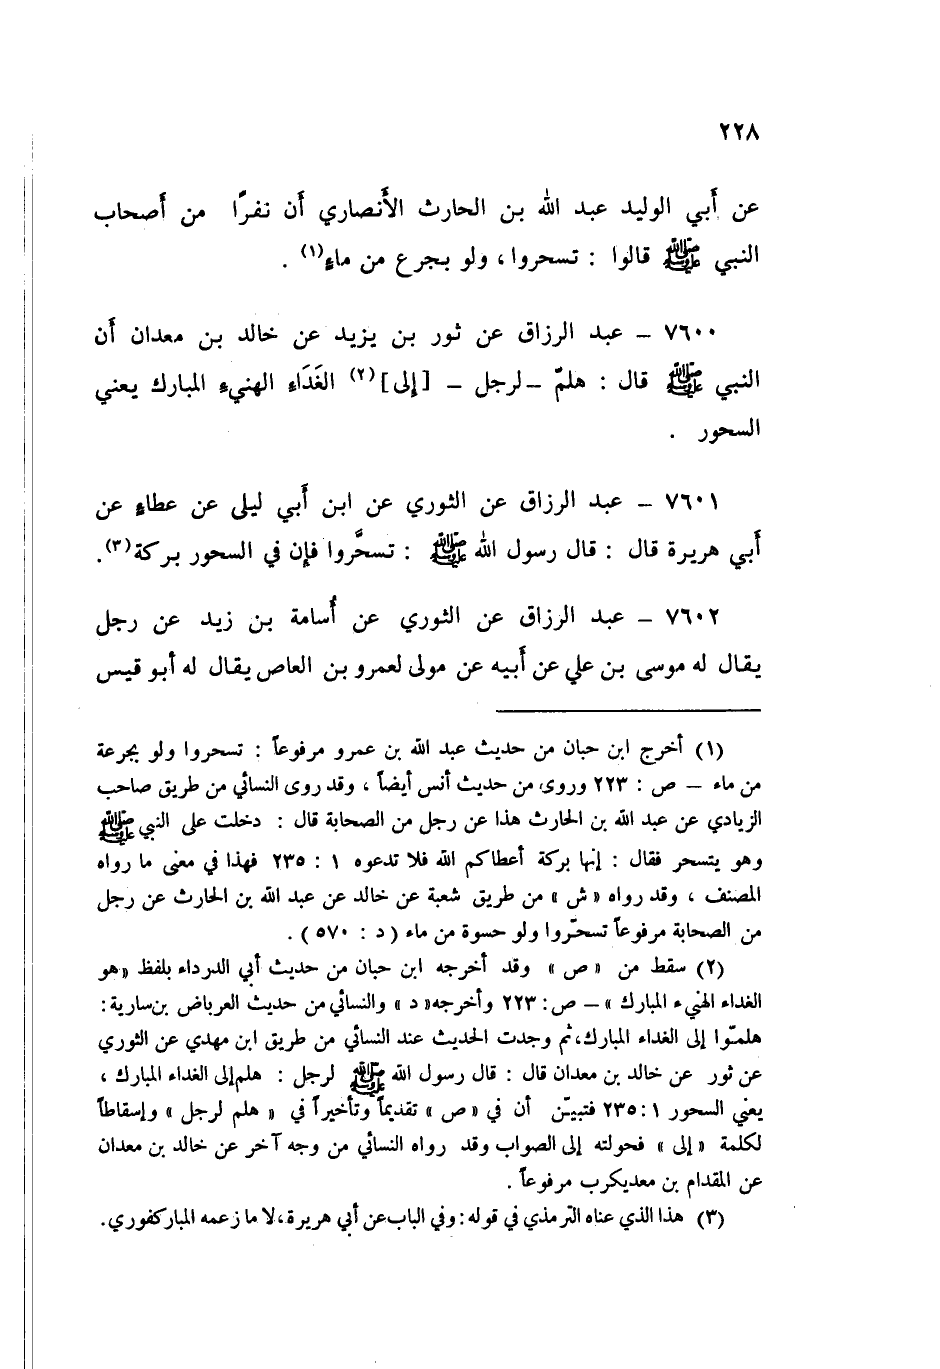 ٢٢٨
عن أَبي الوليد عبد الله بن الحارث الأَنصاري أَن نفرًا من أَصحاب
النبي ﷺ قالوا : تسحروا ، ولو بجرع من ماءٍ(١) .
٧٦٠٠ – عبد الرزاق عن ثور بن يزيد عن خالد بن معدان أَن
النبي ﷺ قال : هلمّ – لرجل – [إلى](٢) الغَدَاء الهنيء المبارك يعني
السحور .
٧٦٠١ – عبد الرزاق عن الثوري عن ابن أَبي ليلى عن عطاءٍ عن
أَبي هريرة قال : قال رسول الله ﷺ : تسحَّروا فإن في السحور بركة(٣).
٧٦٠٢ – عبد الرزاق عن الثوري عن أُسامة بن زيد عن رجل
يقال له موسى بن علي عن أَبيه عن مولى لعمرو بن العاص يقال له أبو قيس
(١) أخرج ابن حبان من حديث عبد الله بن عمرو مرفوعاً : تسحروا ولو بجرعة
من ماء – ص : ٢٢٣ وروى من حديث أنس أيضاً ، وقد روى النسائي من طريق صاحب
الزيادي عن عبد الله بن الحارث هذا عن رجل من الصحابة قال : دخلت على النبي ﷺ
وهو يتسحر فقال : إنها بركة أعطاكم الله فلا تدعوه ١ : ٢٣٥ فهذا في معنى ما رواه
المصنف ، وقد رواه «ش» من طريق شعبة عن خالد عن عبد الله بن الحارث عن رجل
من الصحابة مرفوعاً تسحّروا ولو حسوة من ماء (د : ٥٧٠) .
(٢) سقط من «ص» وقد أخرجه ابن حبان من حديث أبي الدرداء بلفظ «هو
الغداء الهنيء المبارك» – ص : ٢٢٣ وأخرجه «د» والنسائي من حديث العرباض بن سارية :
هلمّوا إلى الغداء المبارك، ثم وجدت الحديث عند النسائي من طريق ابن مهدي عن الثوري
عن ثور عن خالد بن معدان قال : قال رسول الله ﷺ لرجل : هلم إلى الغداء المبارك ،
يعني السحور ١ : ٢٣٥ فتبيّن أن في «ص» تقديماً وتأخيراً في «هلم لرجل» وإسقاطاً
لكلمة «إلى» فحولته إلى الصواب وقد رواه النسائي من وجه آخر عن خالد بن معدان
عن المقدام بن معديكرب مرفوعاً .
(٣) هذا الذي عناه الترمذي في قوله : وفي الباب عن أبي هريرة، لا ما زعمه المباركفوري.